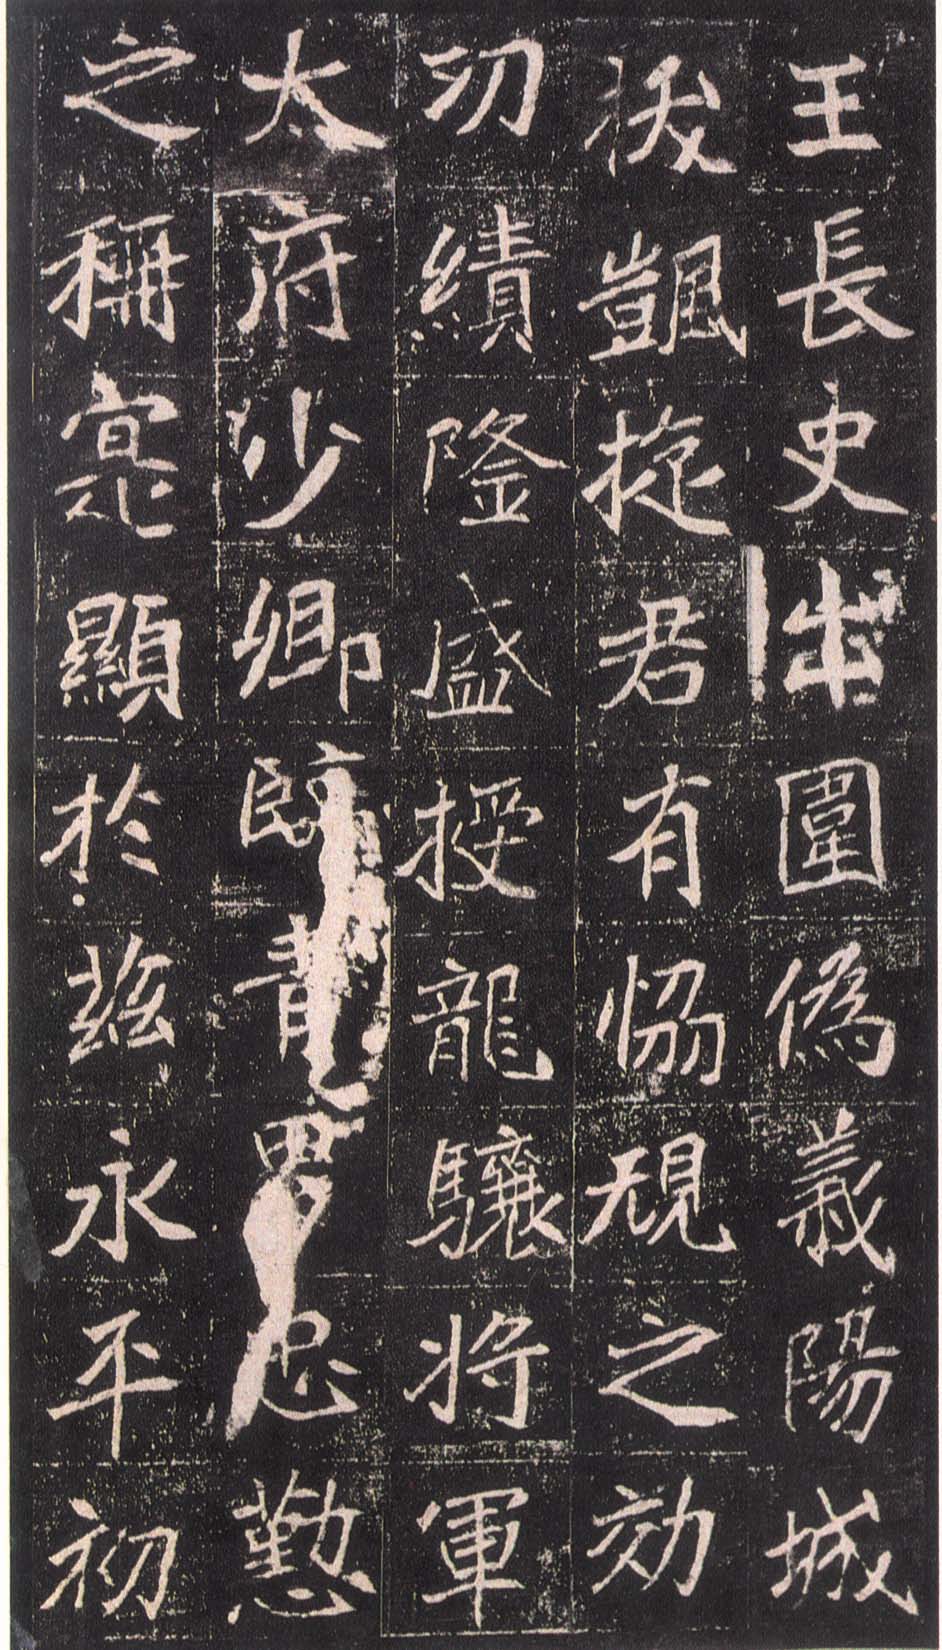 王長史出圍偽義陽城
拔颽旋君有恊規之効
功績隆盛授龍驤將軍
太府少卿臨青男忠懃
之稱寔顯於茲永平初